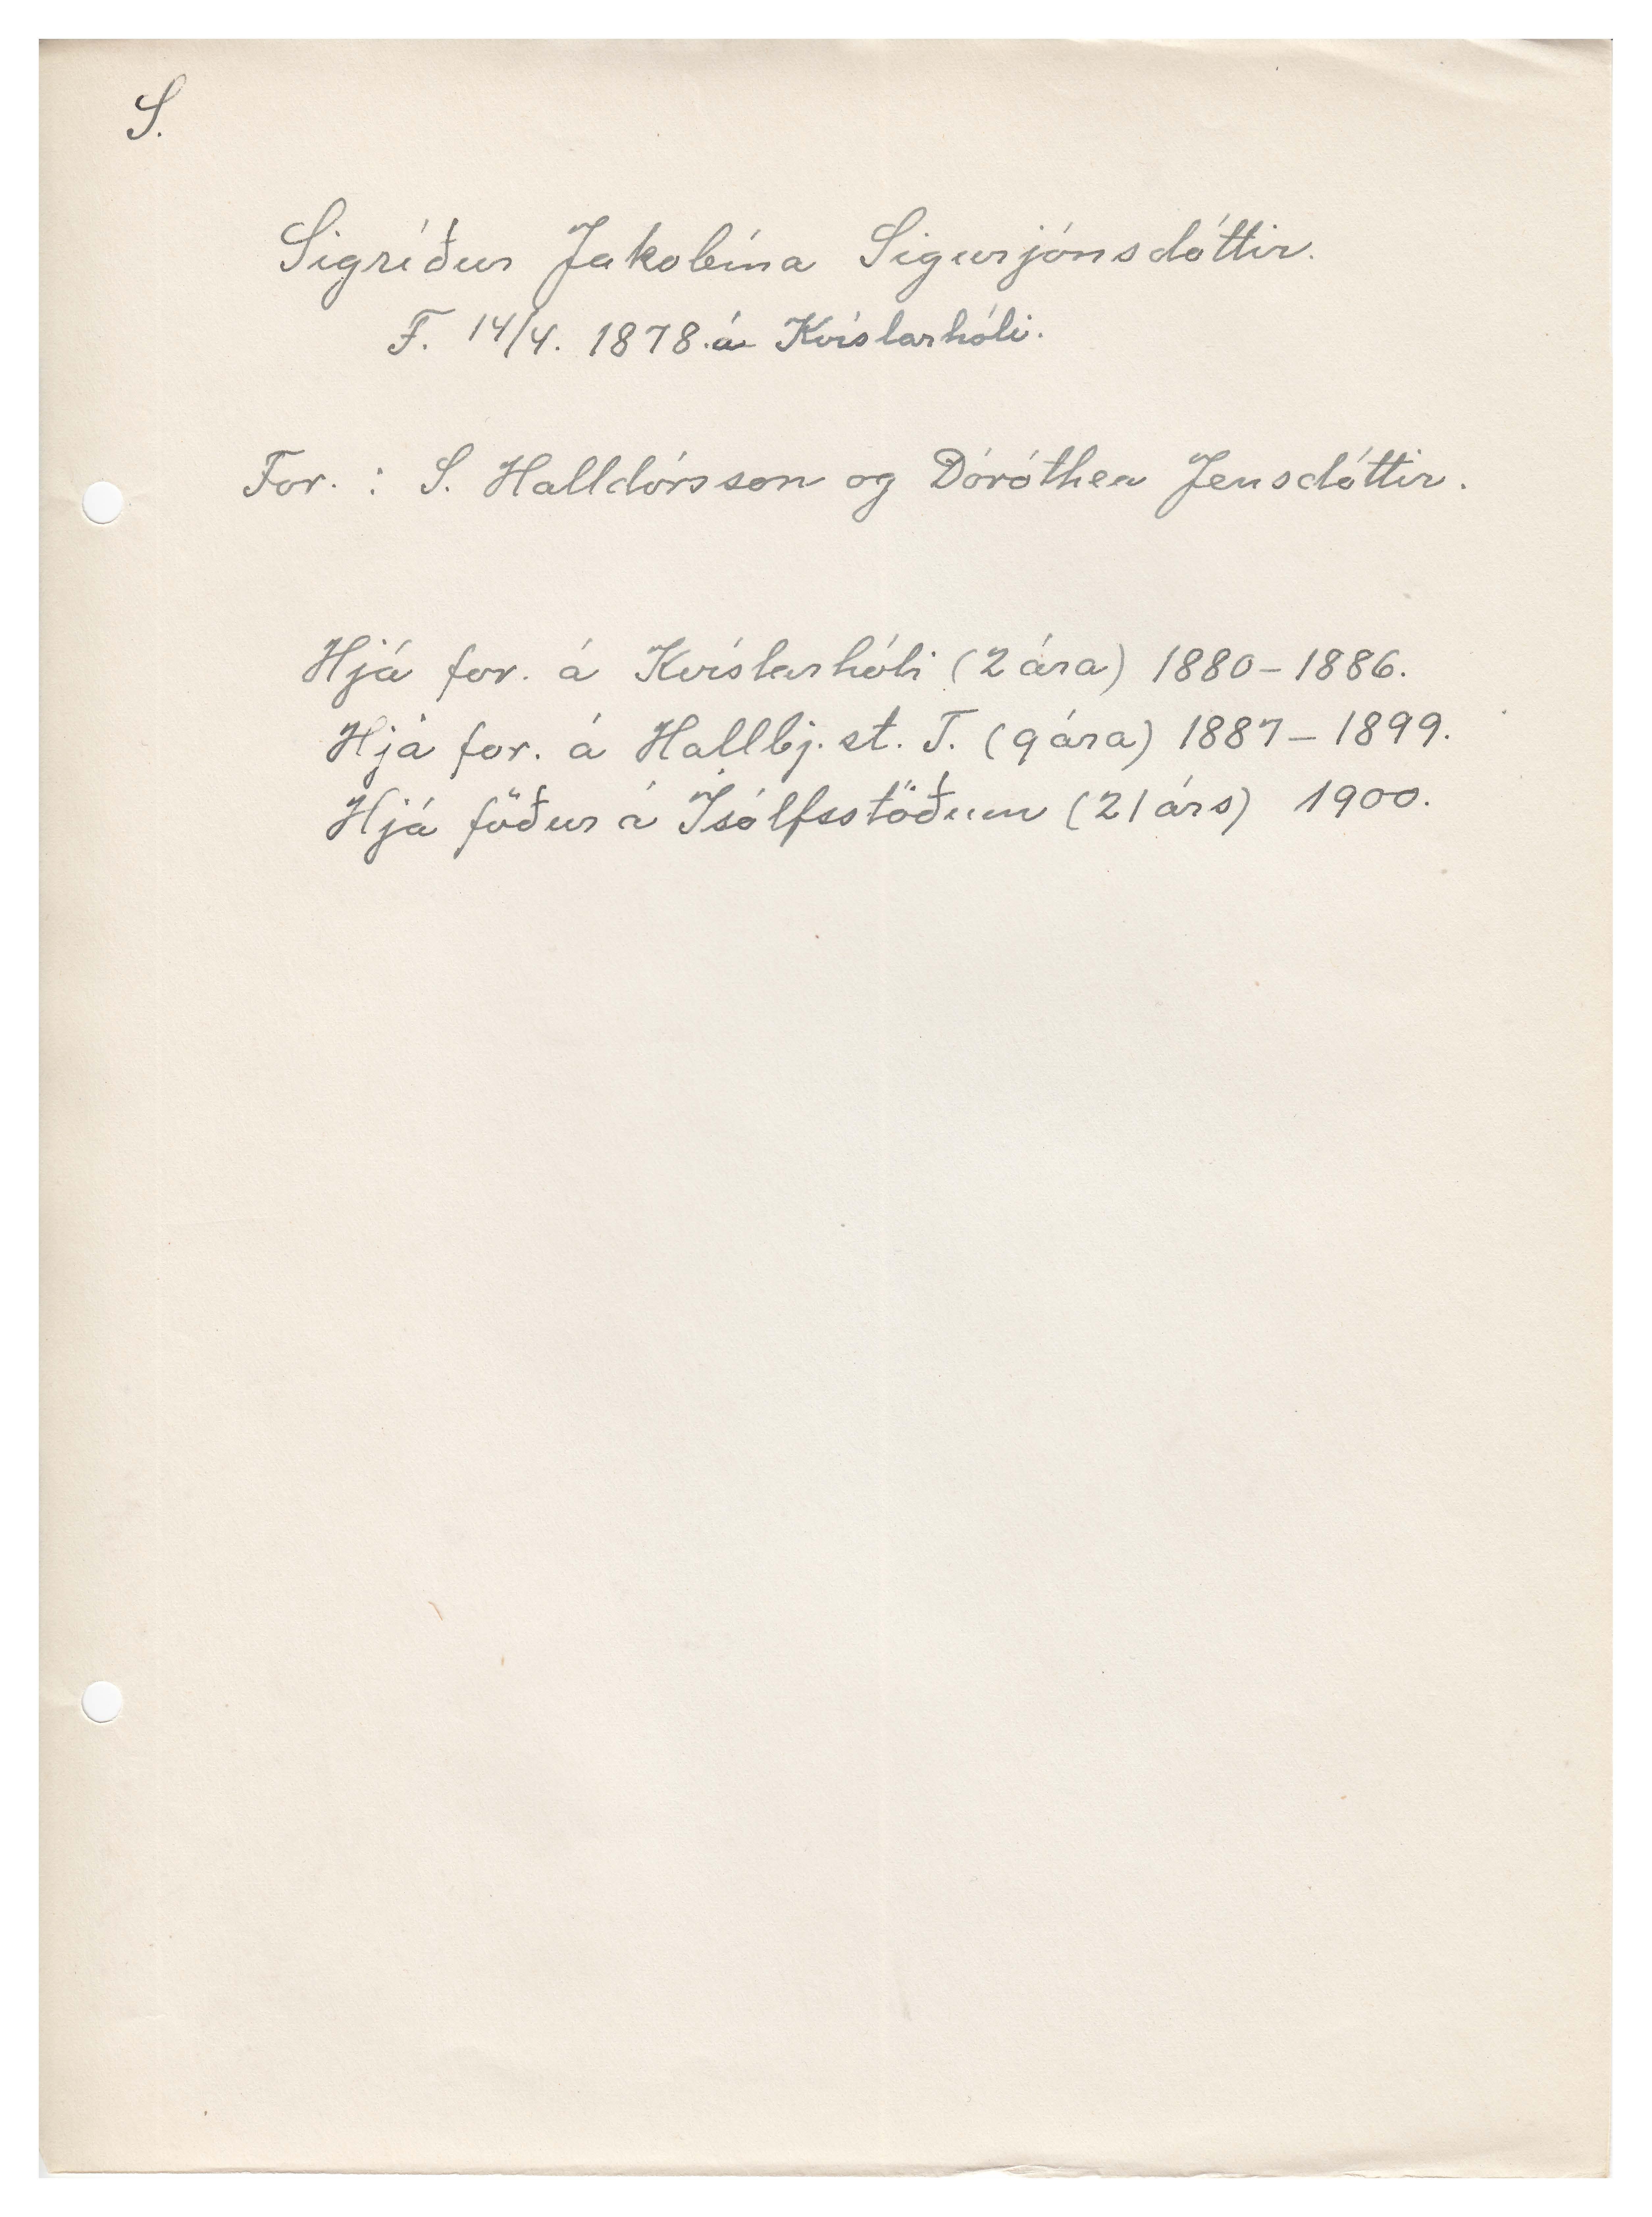 S.
Sigríður Jakobína Sigurjónsdóttir.
F. 14/4. 1878. á Kvíslarhóli.
For. : S. Halldórsson og Dóróthea Jensdóttir.
Hjá for. á Kvíslarhóli (2 ára) 1880-1886.
Hjá for. á Hallbj. st. T. (9 ára) 1887-1899.
Hjá föður á Ísólfsstöðum (21 árs) 1900.